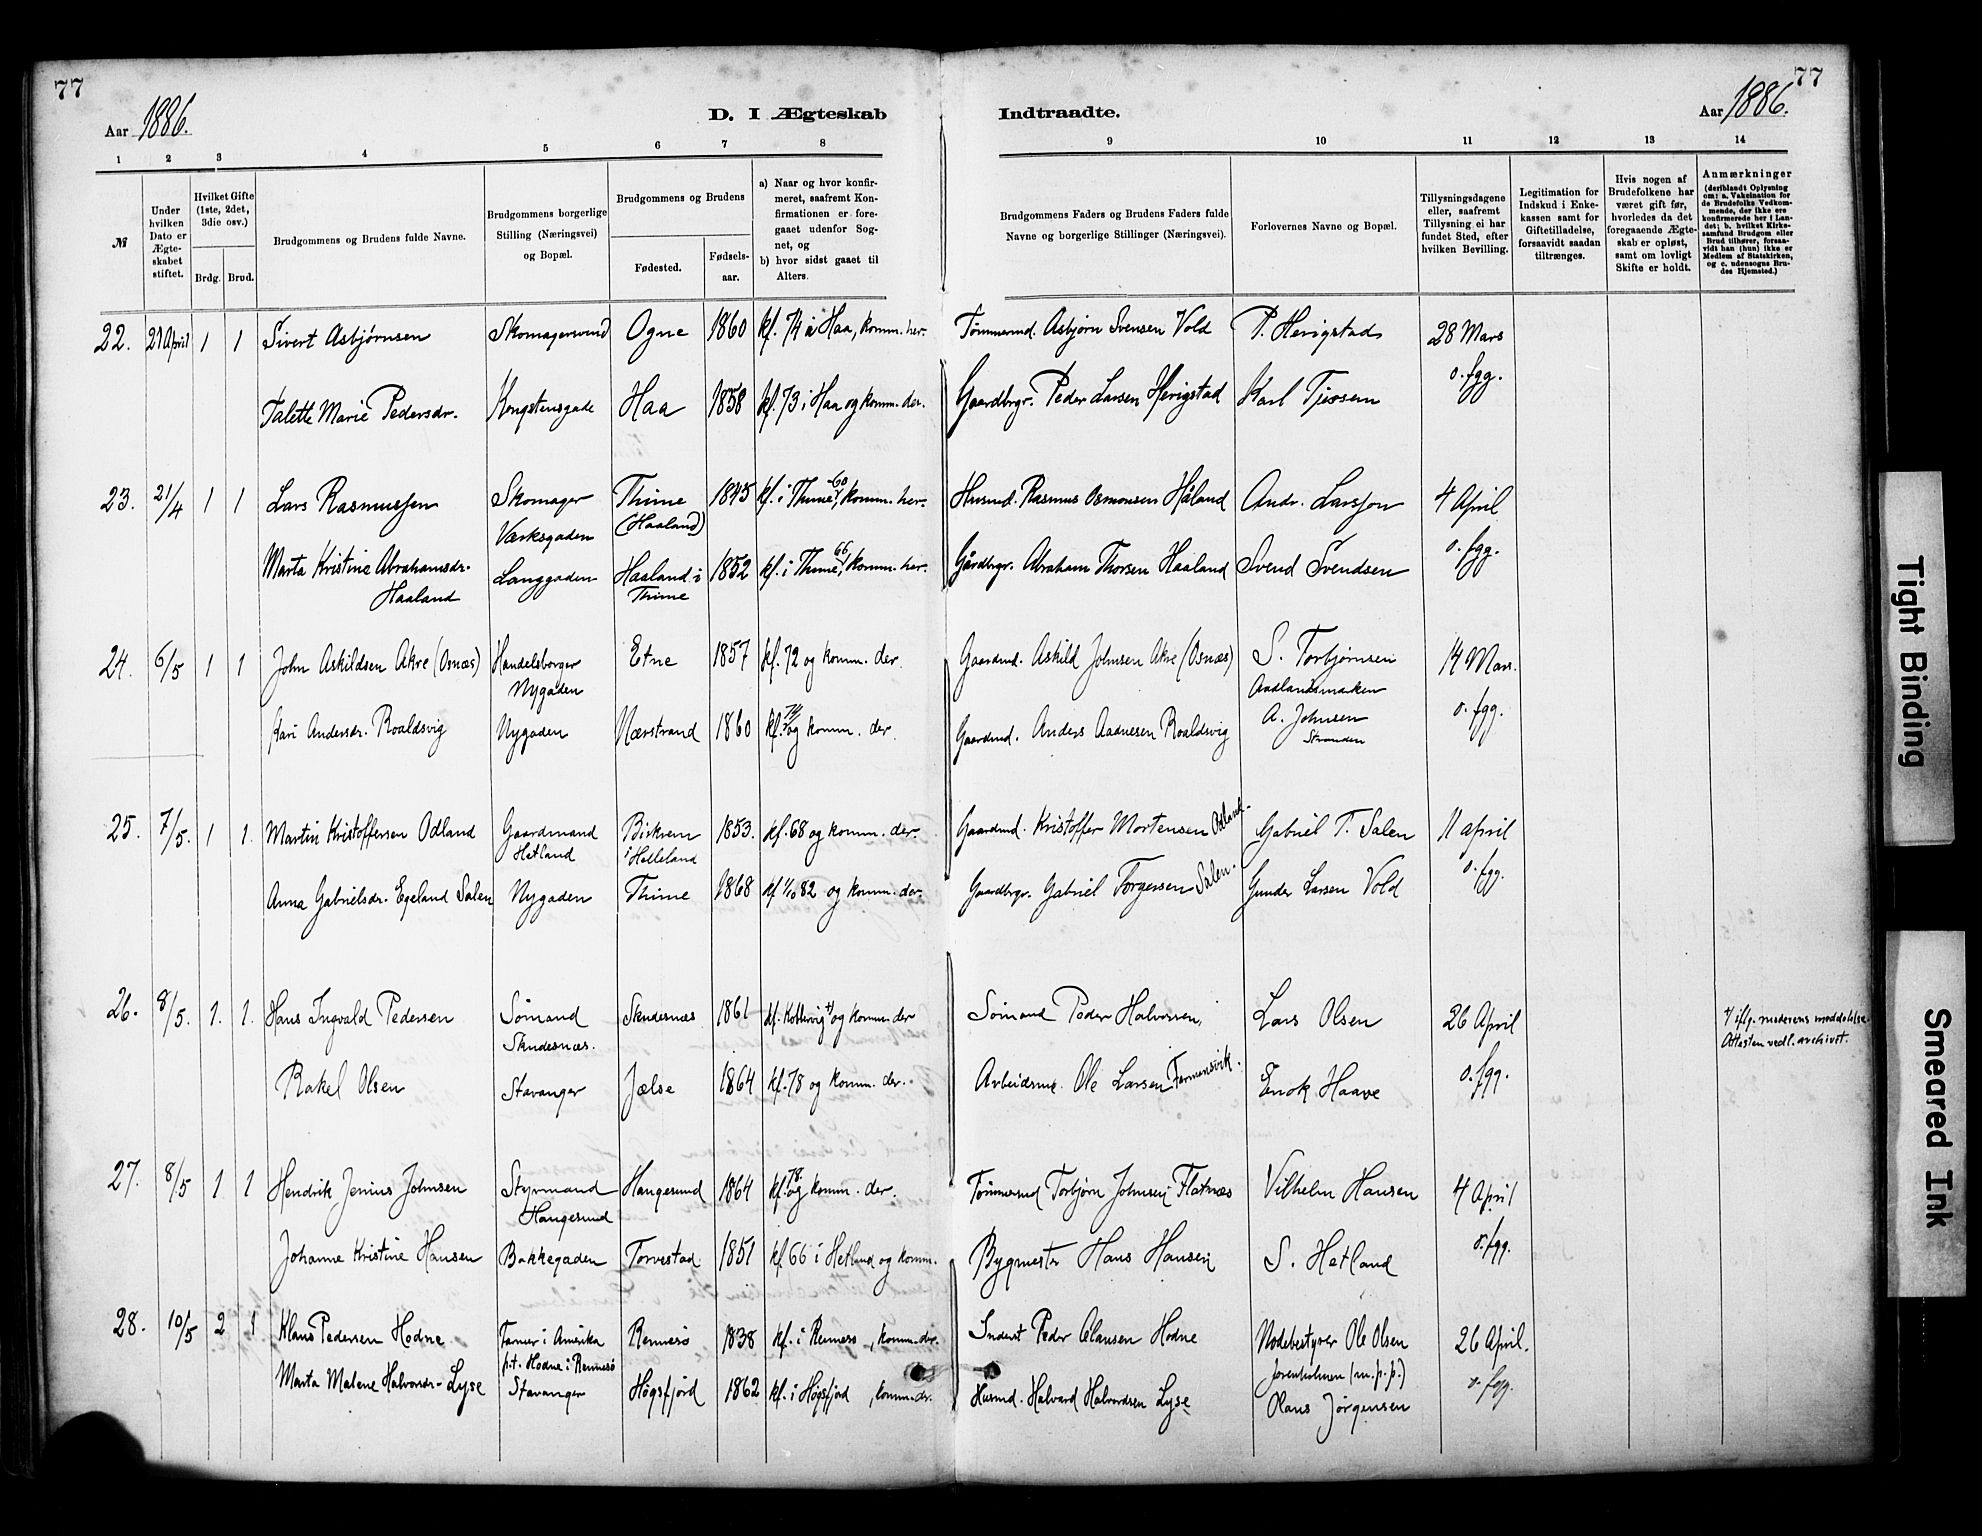 77
77
Aar 1886.
D. I Ægteskab
Indtraadte.
Aar 1886.
1 2 3 4 5 6 7 8 9 10 11 12 13 14
№
Under hvilken Dato er Ægteskabet stiftet.
Hvilket Gifte (1ste, 2det, 3die osv.)
Brdg. Brud.
Brudgommens og Brudens fulde Navne.
Brudgommens borgerlige Stilling (Næringsvei) og Bopæl.
Brudgommens og Brudens
Fødested.
Fødselsaar.
a) Naar og hvor konfirmeret, saafremt Konfirmationen er foregaaet udenfor Sognet, og
b) hvor sidst gaaet til Alters.
Brudgommens Faders og Brudens Faders fulde Navne og borgerlige Stillinger (Næringsvei).
Forlovernes Navne og Bopæl.
Tillysningsdagene eller, saafremt Tillysning ei har fundet Sted, efter hvilken Bevilling.
Legitimation for Indskud i Enkekassen samt for Giftetilladelse, forsaavidt saadan tiltrænges.
Hvis nogen af Brudefolkene har været gift før, hvorledes da det foregaaende Ægteskab er opløst, samt om lovligt Skifte er holdt.
Anmærkninger
(deriblandt Oplysning om: a. Vakcination for de Brudefolks Vedkommende, der ikke ere konfirmerede her i Landet; b. hvilket Kirkesamfund Brudgom eller Brud tilhører, forsaavidt han (hun) ikke er Medlem af Statskirken, og c. udensogns Brudes Hjemsted.)
22. 21 April 1 1 Sivert Asbjørnsen Skomagersvend Ogne 1860 kf. 74 i Haa, komm. her. Tømmermd. Asbjørn Svensen Vold P. Herigstad 28 Mars
Talette Marie Pedersdr. Kongstensgade Haa 1858 kf. 73 i Haa og komm. der. Gaardbrgr. Peder Larsen Herigstad Karl Tjøsem o. fgg.
23. 21/4 1 1 Lars Rasmussen Skomager Thime 1845 kf. i Thime 60, komm. her. Husmd. Rasmus Osmonsen Håland Andr. Larsson 4 April
Værksgaden (Haaland)
Marta Kristine Abrahamsdr. Langgaden Haaland i 1852 kf. i Thime 66, komm. her. Gårdbrgr. Abraham Thorsen Haaland Svend Svendsen o. fgg.
Haaland Thime
24. 6/5 1 1 John Askildsen Akre (Osnæs) Handelsborger Etne 1857 kf. 72 og komm. der. Gaardmd. Askild Johnsen Akre (Osnæs) S. Torbjørnsen 14 Mars.
Nygaden Aadlandsmarken
Kari Andersdr. Roaldsvig Nygaden Nærstrand 1860 kf. 74 og komm. der. Gaardmd. Anders Aadnesen Roaldsvig A. Johnsen o. fgg.
Stranden
25. 7/5. 1 1. Martin Kristoffersen Odland Gaardmand Birkrem 1853. kf. 68 og komm. der. Gaardmd. Kristoffer Mortensen Odland. Gabriel T. Salen 11 April
Hetland i Helleland
Anna Gabrielsdr. Egeland Salen Nygaden Thime 1868 kf 1/10 82 og komm. der. Gaardbrgr. Gabriel Torgersen Salen. Gunder Larsen Vold o. fgg.
26. 8/5. 1. 1. Hans Ingvald Pedersen Sømand Skudesnæs 1861 kf. *) og komm. der Sømand Peder Halvorsen, Lars Olsen 26 April *) iflg. moderens meddelelse.
Skudesnæs. Attesten vedl. archivet.
Rakel Olsen Stavanger Jælse 1864 kf. 78 og komm. der. Arbeidsmd. Ole Larsen Enok Haave o. fgg.
27. 8/5 1 1 Hendrik Jenius Johnsen Styrmand Haugesund 1864 kf. 78. og komm. der. Tømmermd Torbjørn Johnsen Flatnæs Vilhelm Hansen 4 April
Haugesund
Johanne Kristine Hansen Bakkegaden Torvestad 1851 kf 66 i Hetland og komm. Bygmester Hans Hansen S. Hetland o. fgg.
28. 10/5 2 1 Klaus Pedersen Hodne Farmer i Amerika Rennesø 1838 kf. i Rennesø, komm. der. Inderst Peder Clausen Hodne Ole Olsen 26 April.
p.t. Hodne i Rennesø (m.p.p.)
Marta Malene Halvorsdr. Lyse Stavanger Høgsfjord 1862 kf. i Høgsfjord, komm. der. Husmd. Halvard Halvardsen Lyse Jørgensen o. fgg.
Tight Binding
Smeared Ink